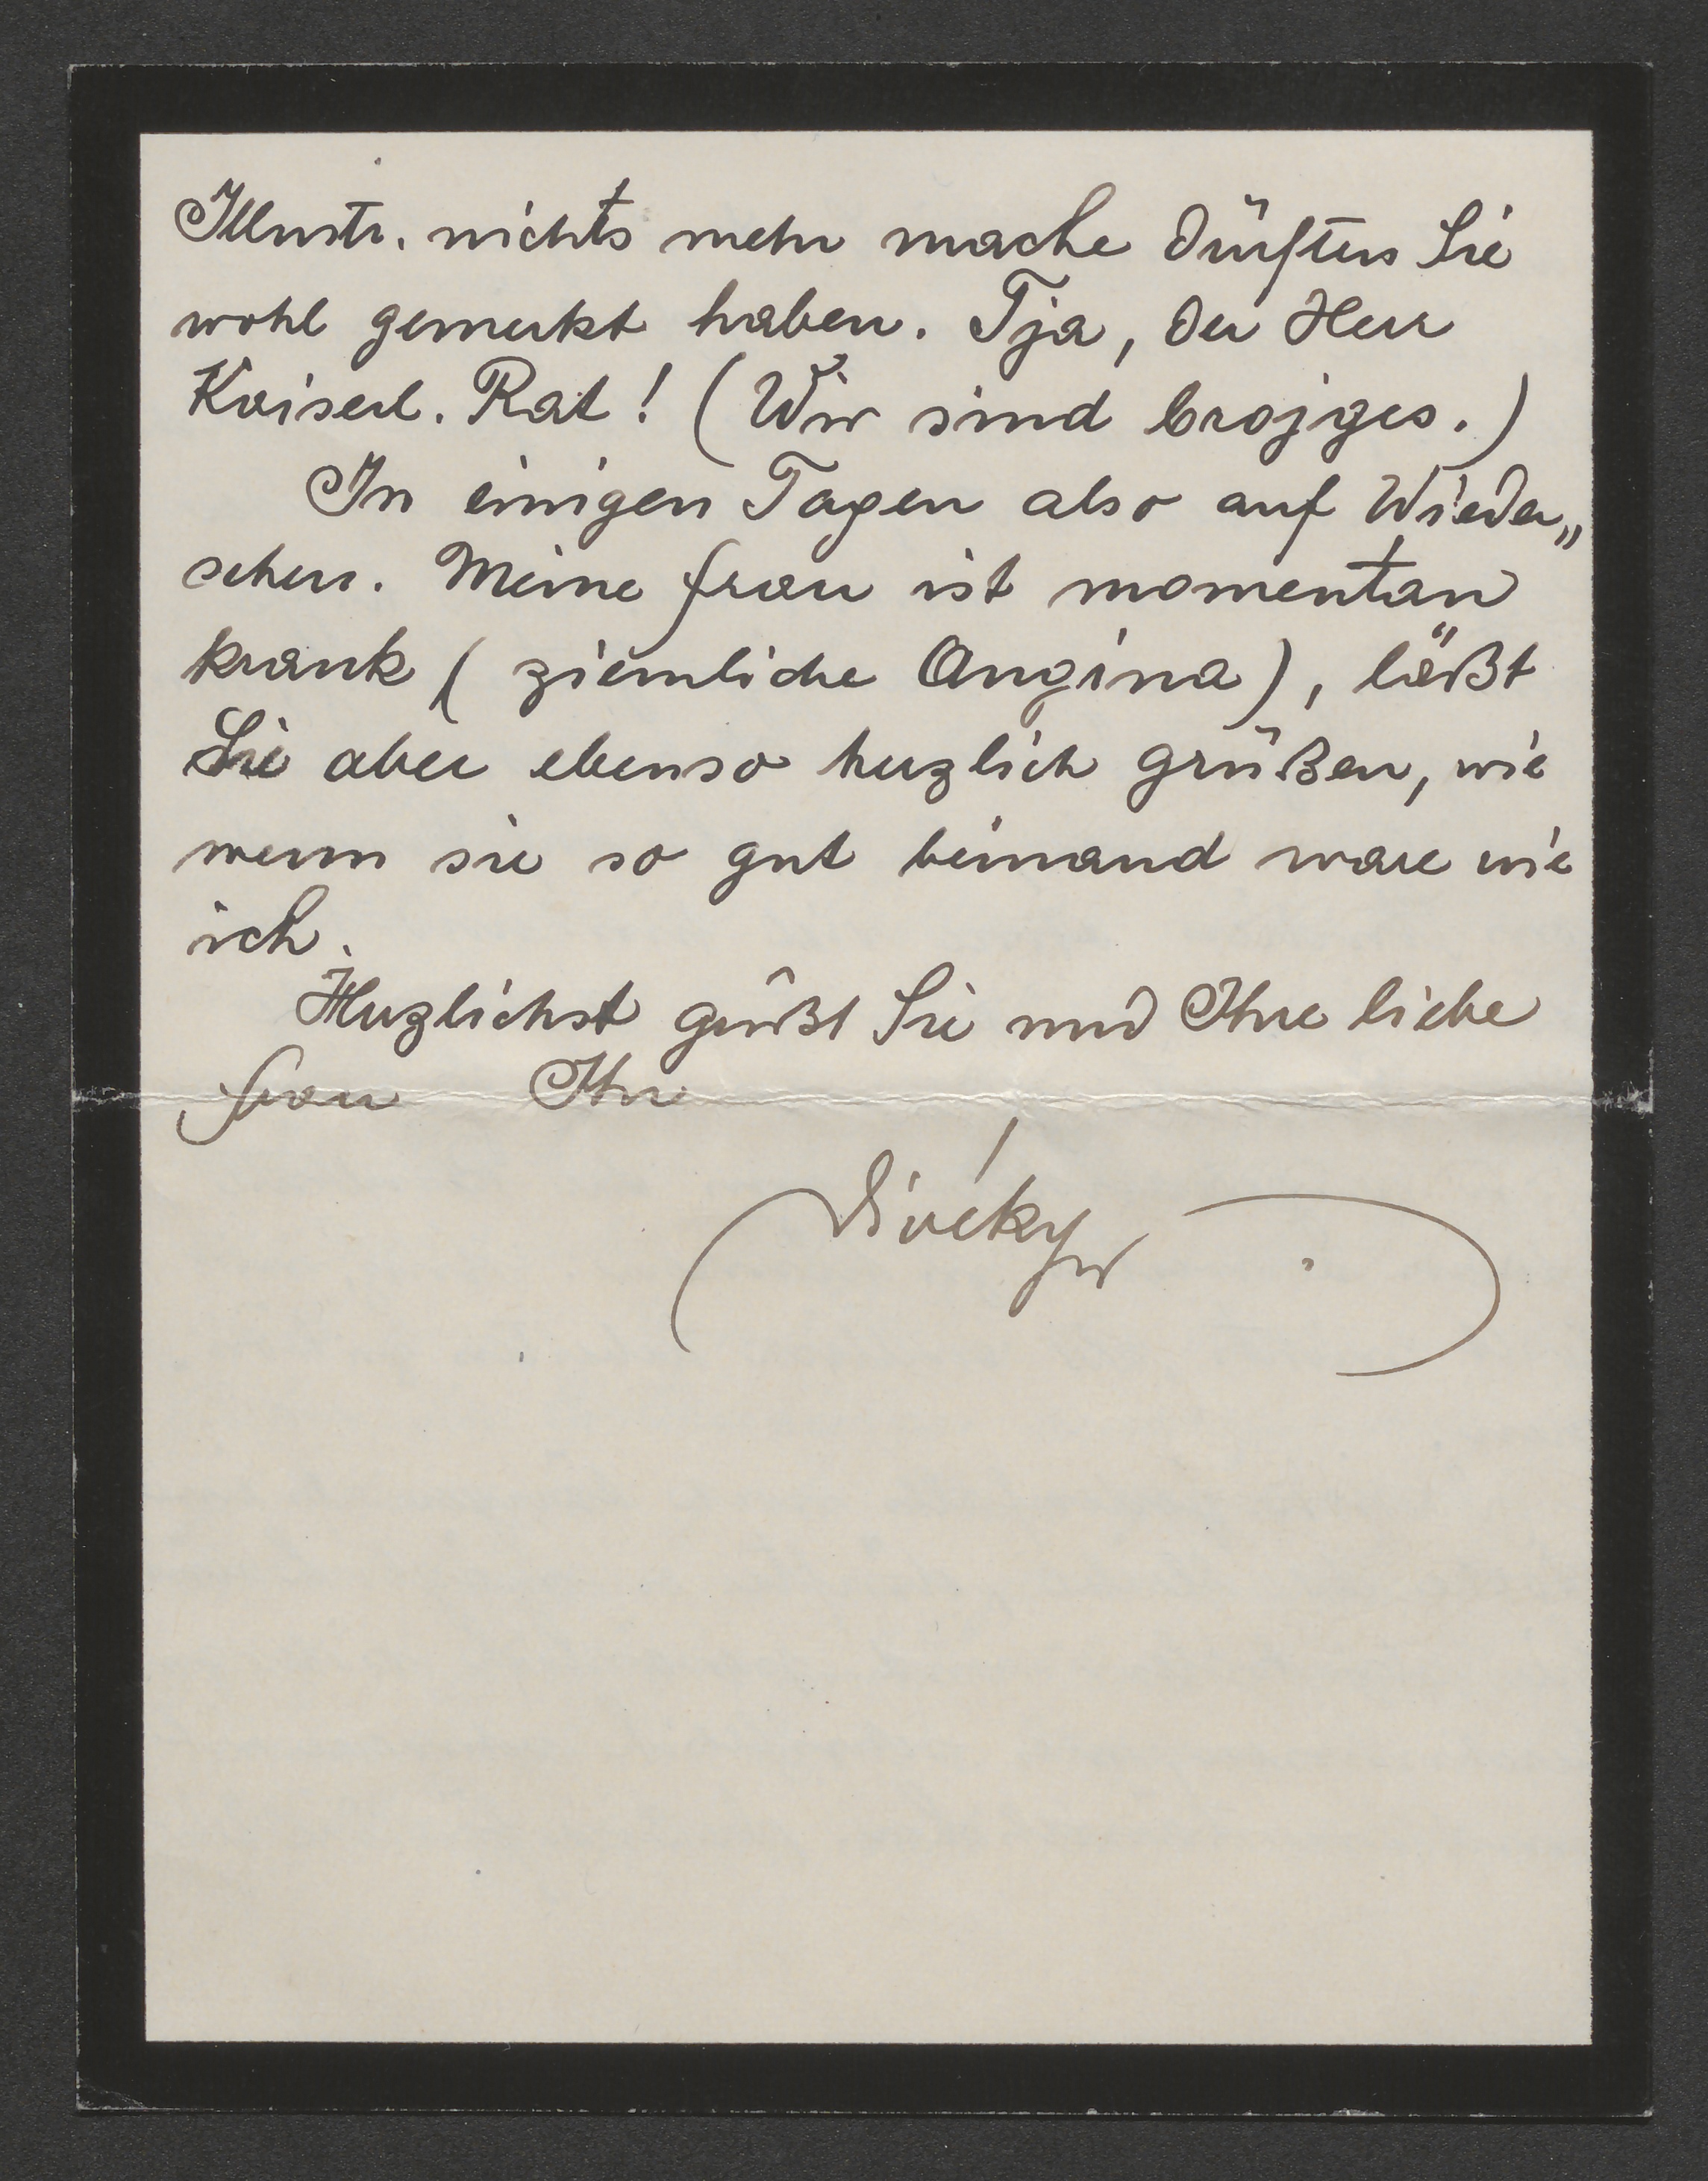 Illustr. nichts mehr mache dürften Sie
wohl gemerkt haben. Tja, der Herr
Kaiserl. Rat! (Wir sind brojges.)
In einigen Tagen also auf Wieder„
sehen. Meine Frau ist momentan
krank (ziemliche Angina), läßt
Sie aber ebenso herzlich grüßen, wie
wenn sie so gut beinand ware wie
ich.
Herzlichst grüßt Sie und Ihre liebe
Frau Ihr
Divéky